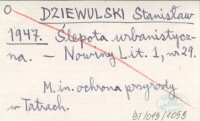 DZIEWULSKI Stanisław
1947. Ślepota urbanistycz-
na. – Nowiny Lit. 1, nr 29.
M. in. ochrona przyrody
w Tatrach.